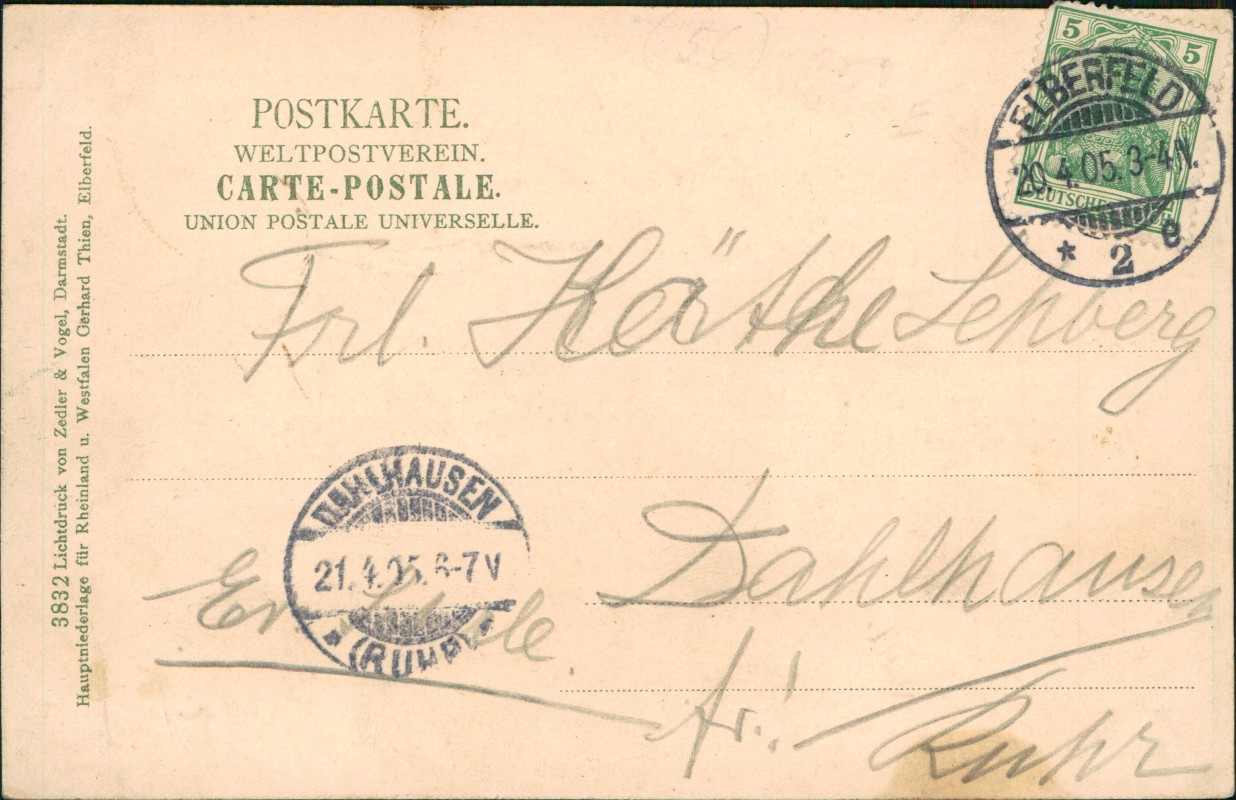 POSTKARTE.
WELTPOSTVEREIN.
CARTE-POSTALE.
UNION POSTALE UNIVERSELLE.
5 5
ELBERFELD
20.4.05.3-4N.
* 2 e
Frl. Käthe Lehberg
DAHLHAUSEN
21.4.05.6-7V
(RUHR)
Dahlhausen
Ev. Schule.
Ruhr
3832 Lichtdruck von Zedler & Vogel, Darmstadt.
Hauptniederlage für Rheinland u. Westfalen Gerhard Thien, Elberfeld.